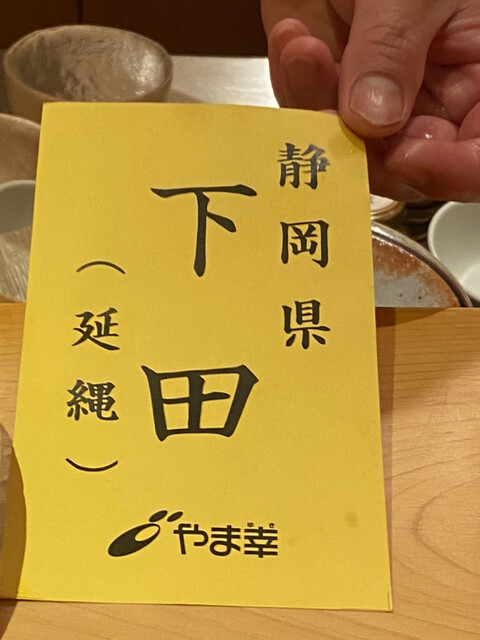 静岡県
下田
（延縄）
やま幸